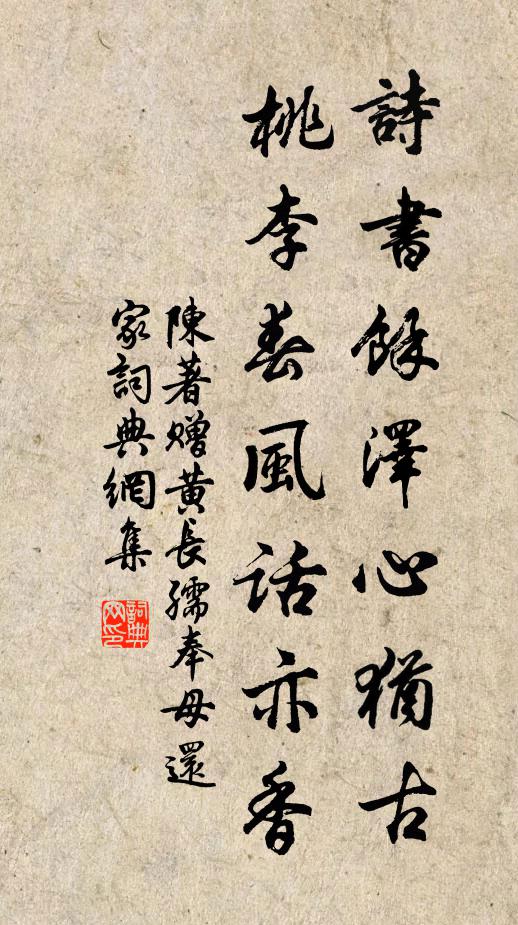 詩書餘澤心猶古
桃李春風話亦香
陳著贈黃長孺奉母還
家詞典網集
詞典
网印